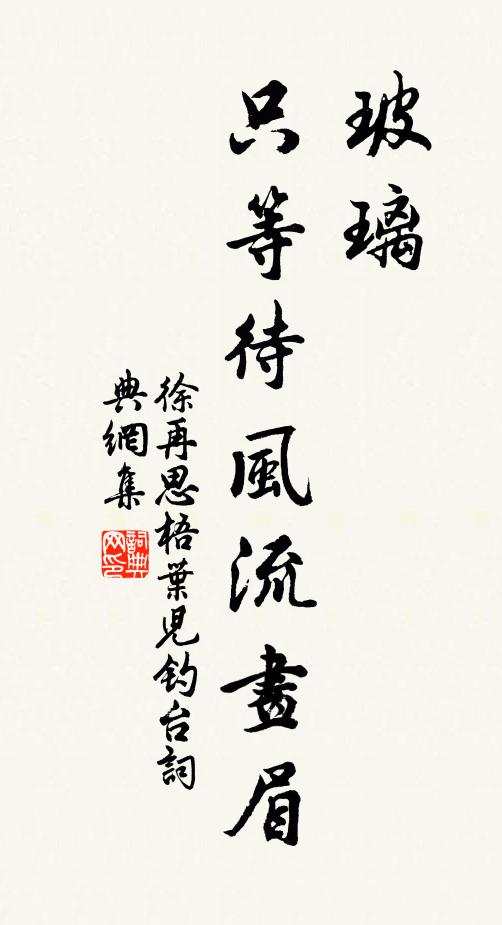 玻璃
只等待風流畫眉
徐再思梧葉兒釣台詞
典網集
詞典
网印